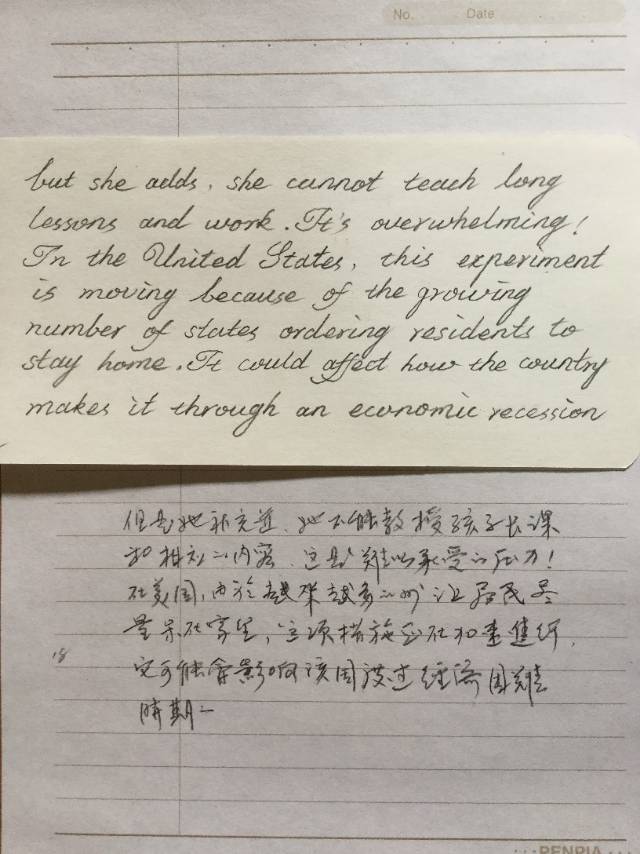 No. Date
but she adds, she cannot teach long
lessons and work. It's overwhelming!
In the United States, this experiment
is moving because of the growing
number of states ordering residents to
stay home. It could affect how the country
makes it through an economic recession
但是她补充道、她不能教授孩子长课
和相对的内容、这是难以承受的压力!
在美国,由于越来越多的州让居民尽
量呆在家里,这项措施正在
18
它可能会影响该国渡过经济困难
时期
PENPIA